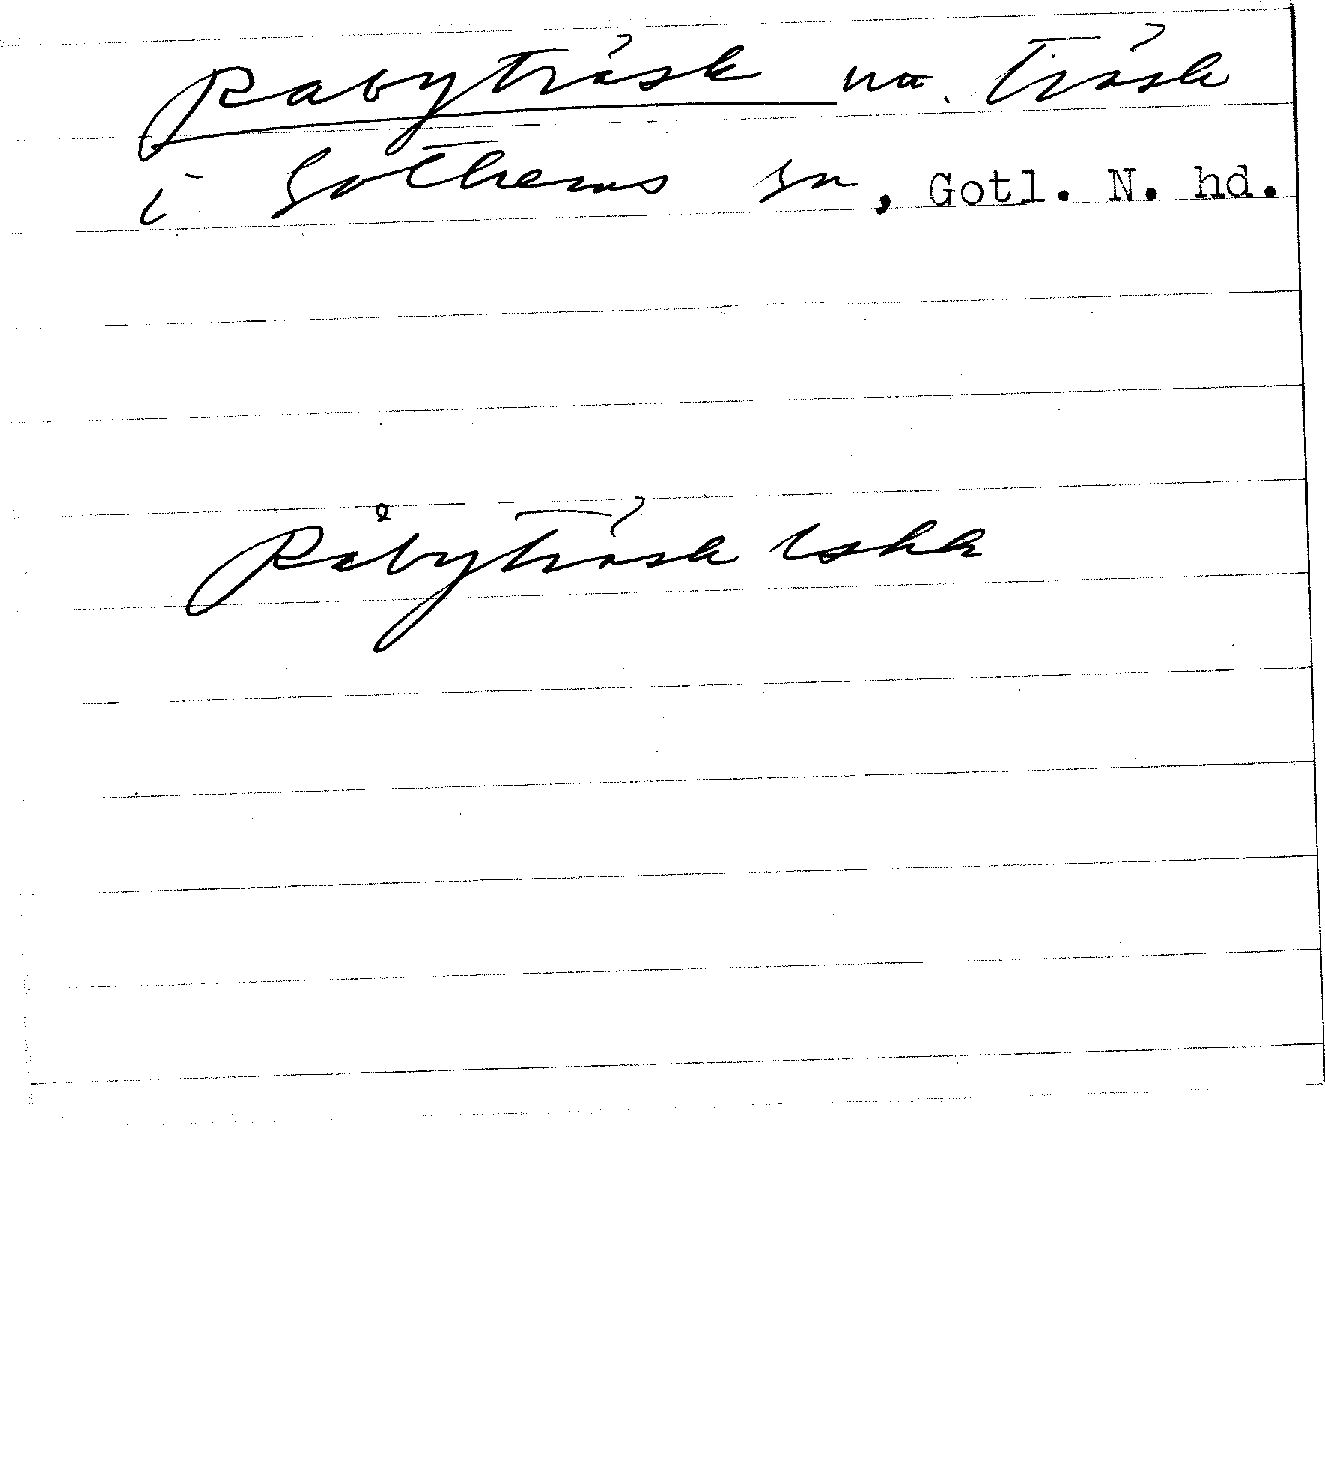 Rabyträsk na. träsk
i Gothems sn, Gotl. N. hd.
Råbyträsk